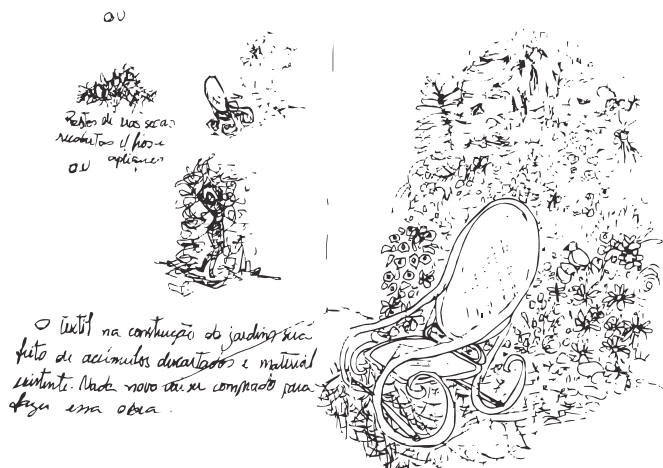 OU
Restos de vias secas
recobertas c/ fios e
apliques
OU
O têxtil na construção do jardim será
feito de acúmulos descartados e material
existente. Nada novo vai ser comprado para
fazer essa obra.